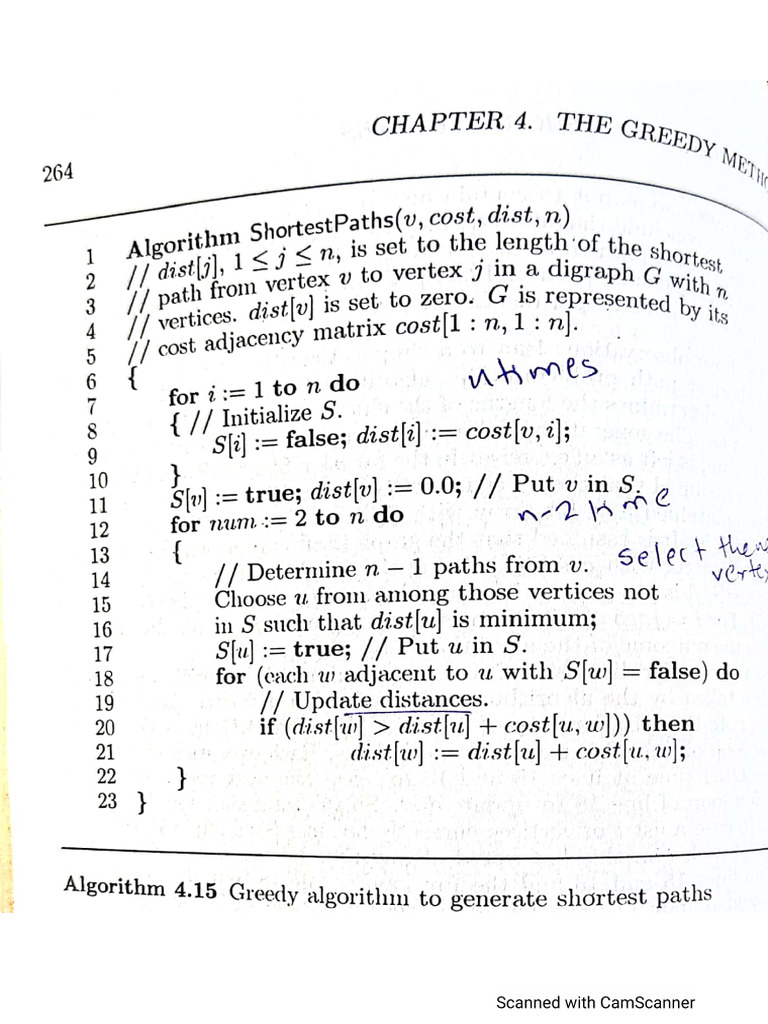 CHAPTER 4. THE GREEDY
264
1 Algorithm ShortestPaths(v, cost, dist, n)
2 // dist[j], 1 ≤ j ≤ n, is set to the length of the shortest
3 // path from vertex v to vertex j in a digraph G with n
4 // vertices. dist[v] is set to zero. G is represented by its
5 // cost adjacency matrix cost[1 : n, 1 : n].
6 {
7 for i := 1 to n do n times
8 { // Initialize S.
9 S[i] := false; dist[i] := cost[v, i];
10 }
11 S[v] := true; dist[v] := 0.0; // Put v in S.
12 for num := 2 to n do n-2 time
13 { select
14 // Determine n − 1 paths from v.
15 Choose u from among those vertices not
16 in S such that dist[u] is minimum;
17 S[u] := true; // Put u in S.
18 for (each w adjacent to u with S[w] = false) do
19 // Update distances.
20 if (dist[w] > dist[u] + cost[u, w])) then
21 dist[w] := dist[u] + cost[u, w];
22 }
23 }
Algorithm 4.15 Greedy algorithm to generate shortest paths
Scanned with CamScanner